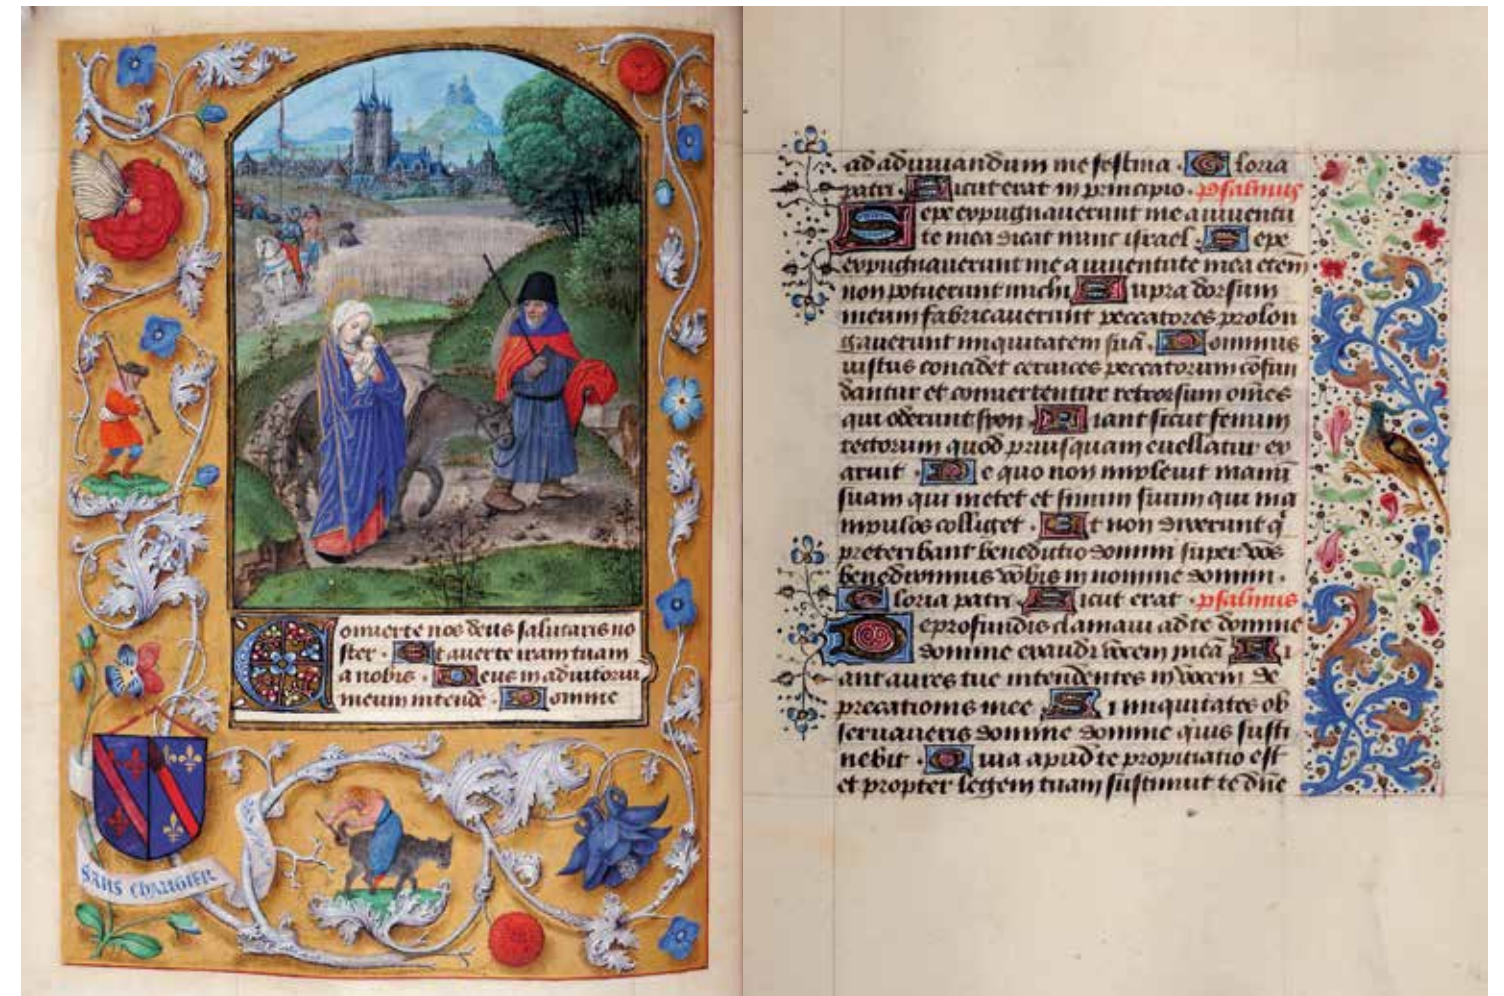 Conuerte nos deus salutaris no
ster · Et auerte iram tuam
a nobis · Deus in adiutoriū
meum intende · Domine
SANS CHANGIER
ad adiuuandum me festina · Gloria
patri · Sicut erat in principio · psalmus
Sepe expugnauerunt me a iuuentu
te mea dicat nunc israel · Sepe
expugnauerunt me a iuuentute mea etem
non potuerunt michi Supra dorsum
meum fabricauerunt peccatores prolon
gauerunt iniquitatem suā · Dominus
iustus concidet ceruices peccatorum cōfun
dantur et conuertentur retrorsum om̄es
qui oderunt syon · Fiant sicut fenum
tectorum quod priusquam euellatur ex
aruit · De quo non impleuit manū
suam qui metet et sinum suum qui ma
nipulos colliget · Et non dixerunt q̄
preteribant benedictio domini super vos
benediximus vobis in nomine domini ·
Gloria patri · Sicut erat · psalmus
De profundis clamaui ad te domine
domine exaudi vocem meā Fi
ant aures tue intendentes in vocem de
precationis mee Si iniquitates ob
seruaueris domine domine quis susti
nebit · Quia apud te propitiatio est
et propter legem tuam sustinui te dn̄e